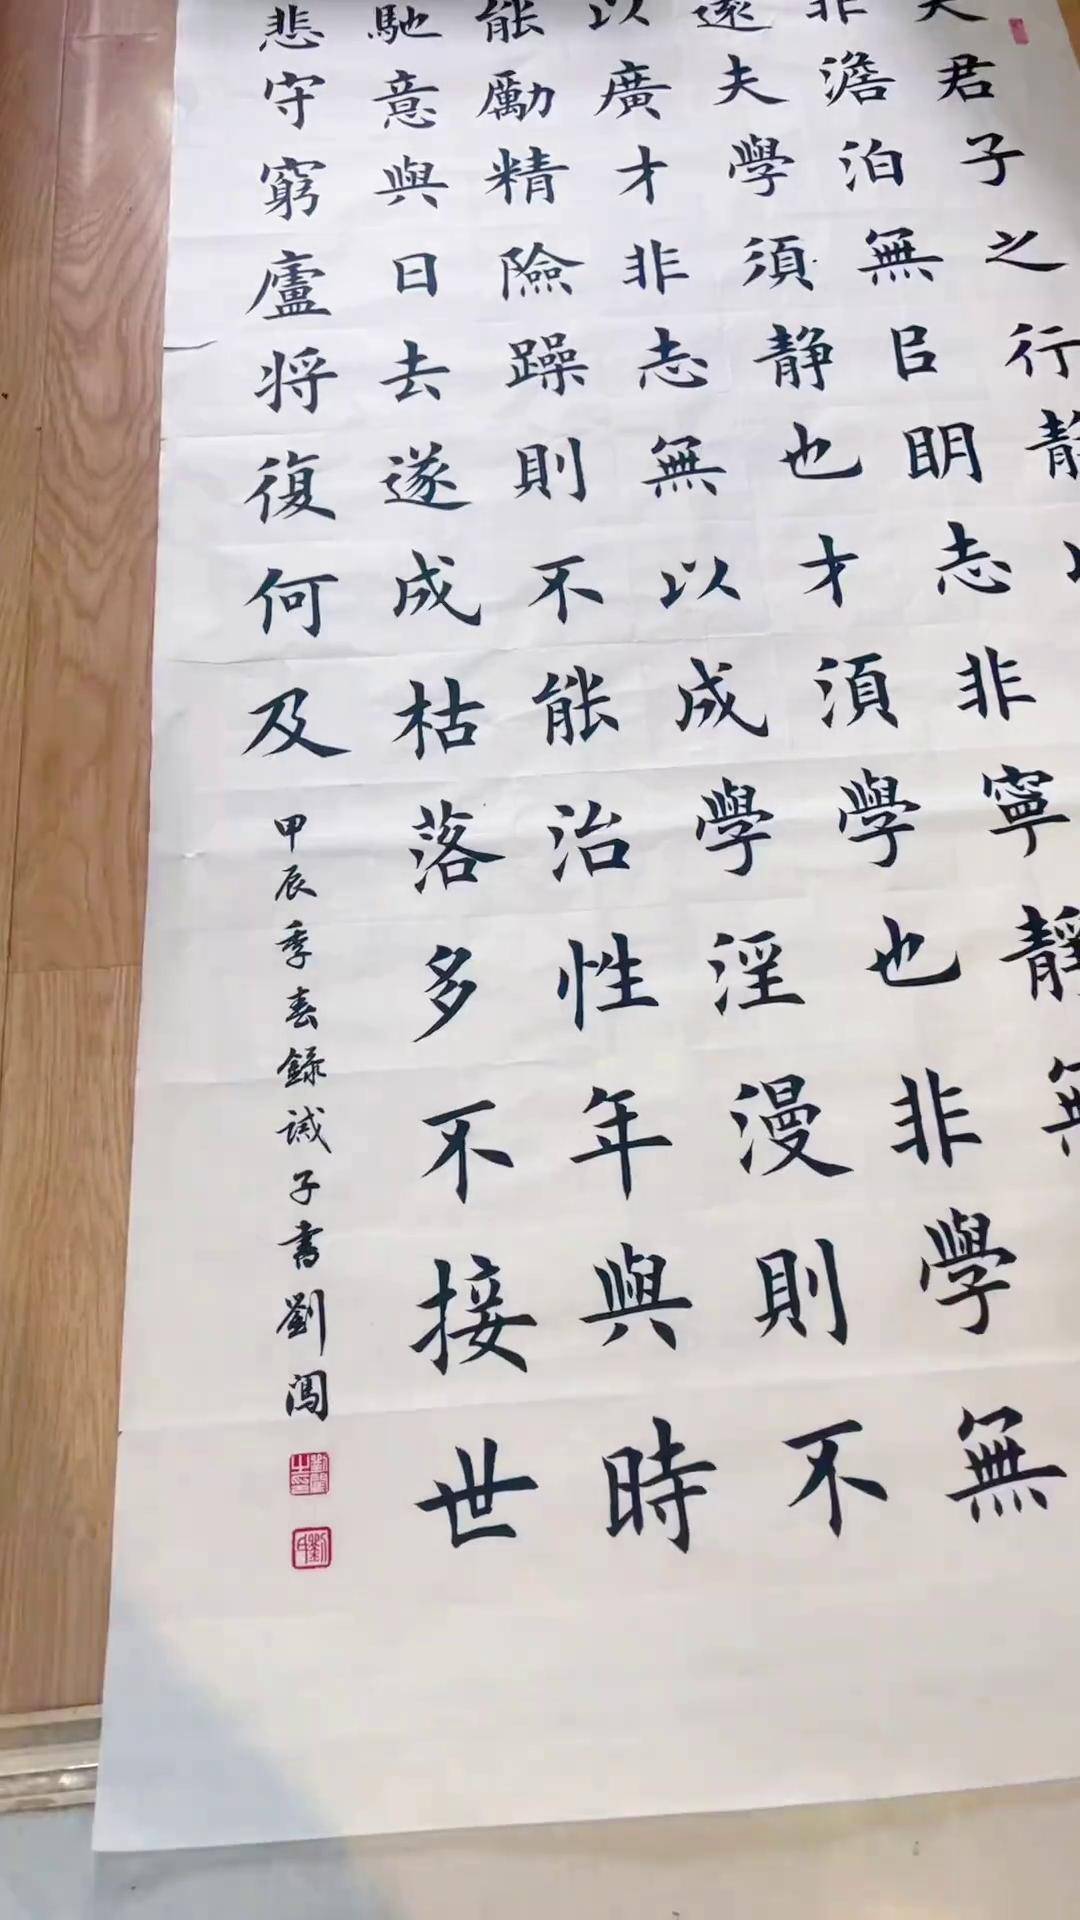 夫君子之行静
非澹泊無㠯眀志非寧静無
遠夫學須静也才須學也非學無
以廣才非志無以成學淫漫則不
能勵精險躁則不能治性年與時
馳意與日去遂成枯落多不接世
悲守窮廬将復何及
甲辰季春録誡子書劉闖